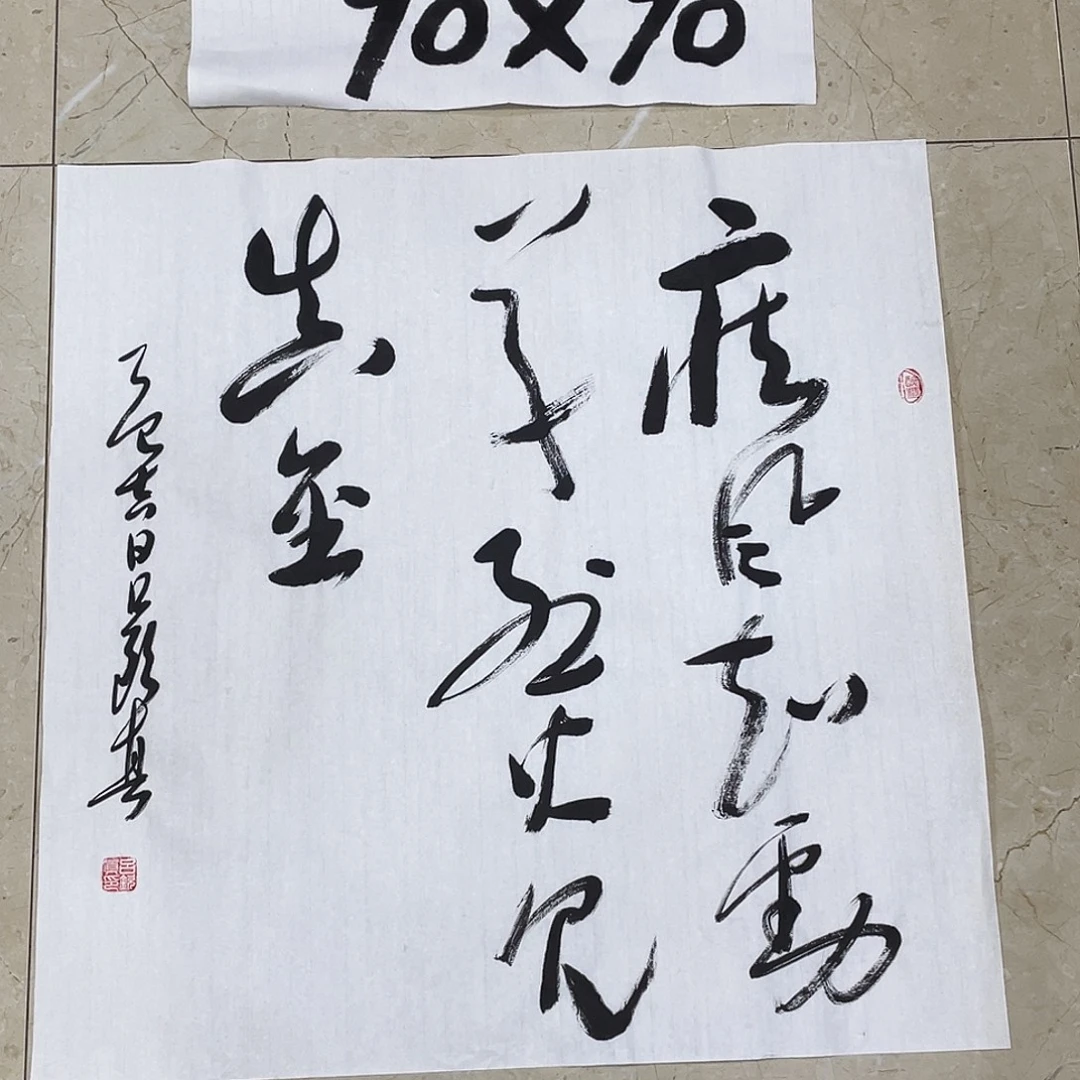 70X70
疾風知勁
草烈火見
真金
乙巳吉日吕真